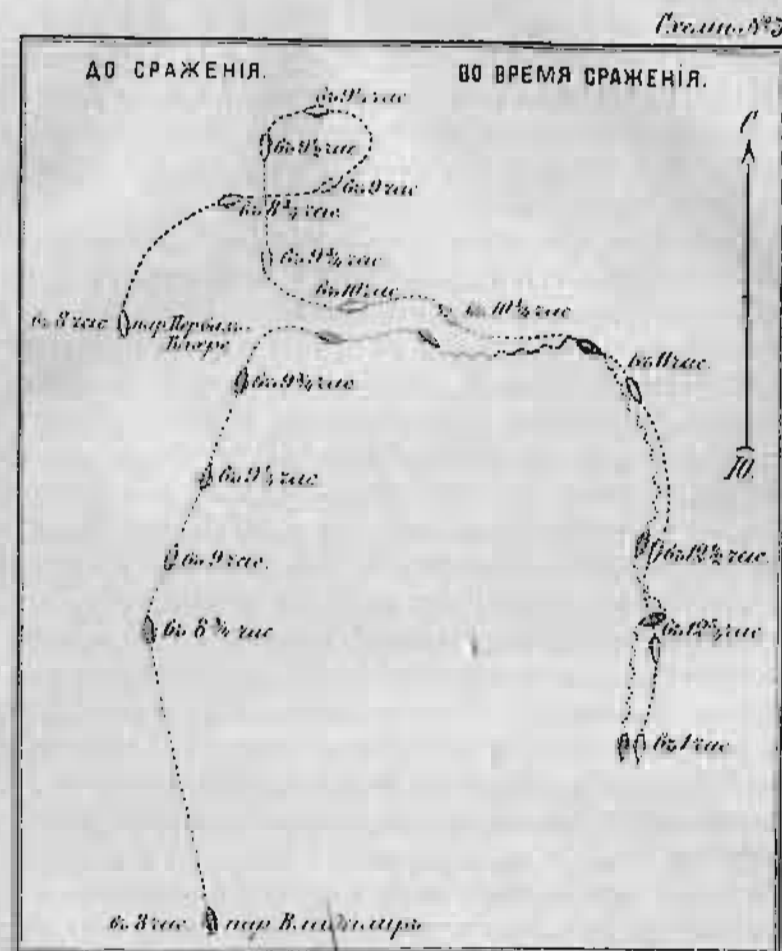 Схема. №3
ДО СРАЖЕНІЯ.
ВО ВРЕМЯ СРАЖЕНІЯ.
С
въ 9½ час
въ 9 час
въ 8¾ час
въ 9¾ час
въ 10 час
въ 10¼ час
въ 8 час
пар Перваз-
Бахре
въ 11 час.
въ 9¾ час
Ю.
въ 9¼ час
въ 9 час.
въ 12½ час.
въ 8¾ час
въ 12¾ час
въ 1 час
въ 8 час
пар Владиміръ